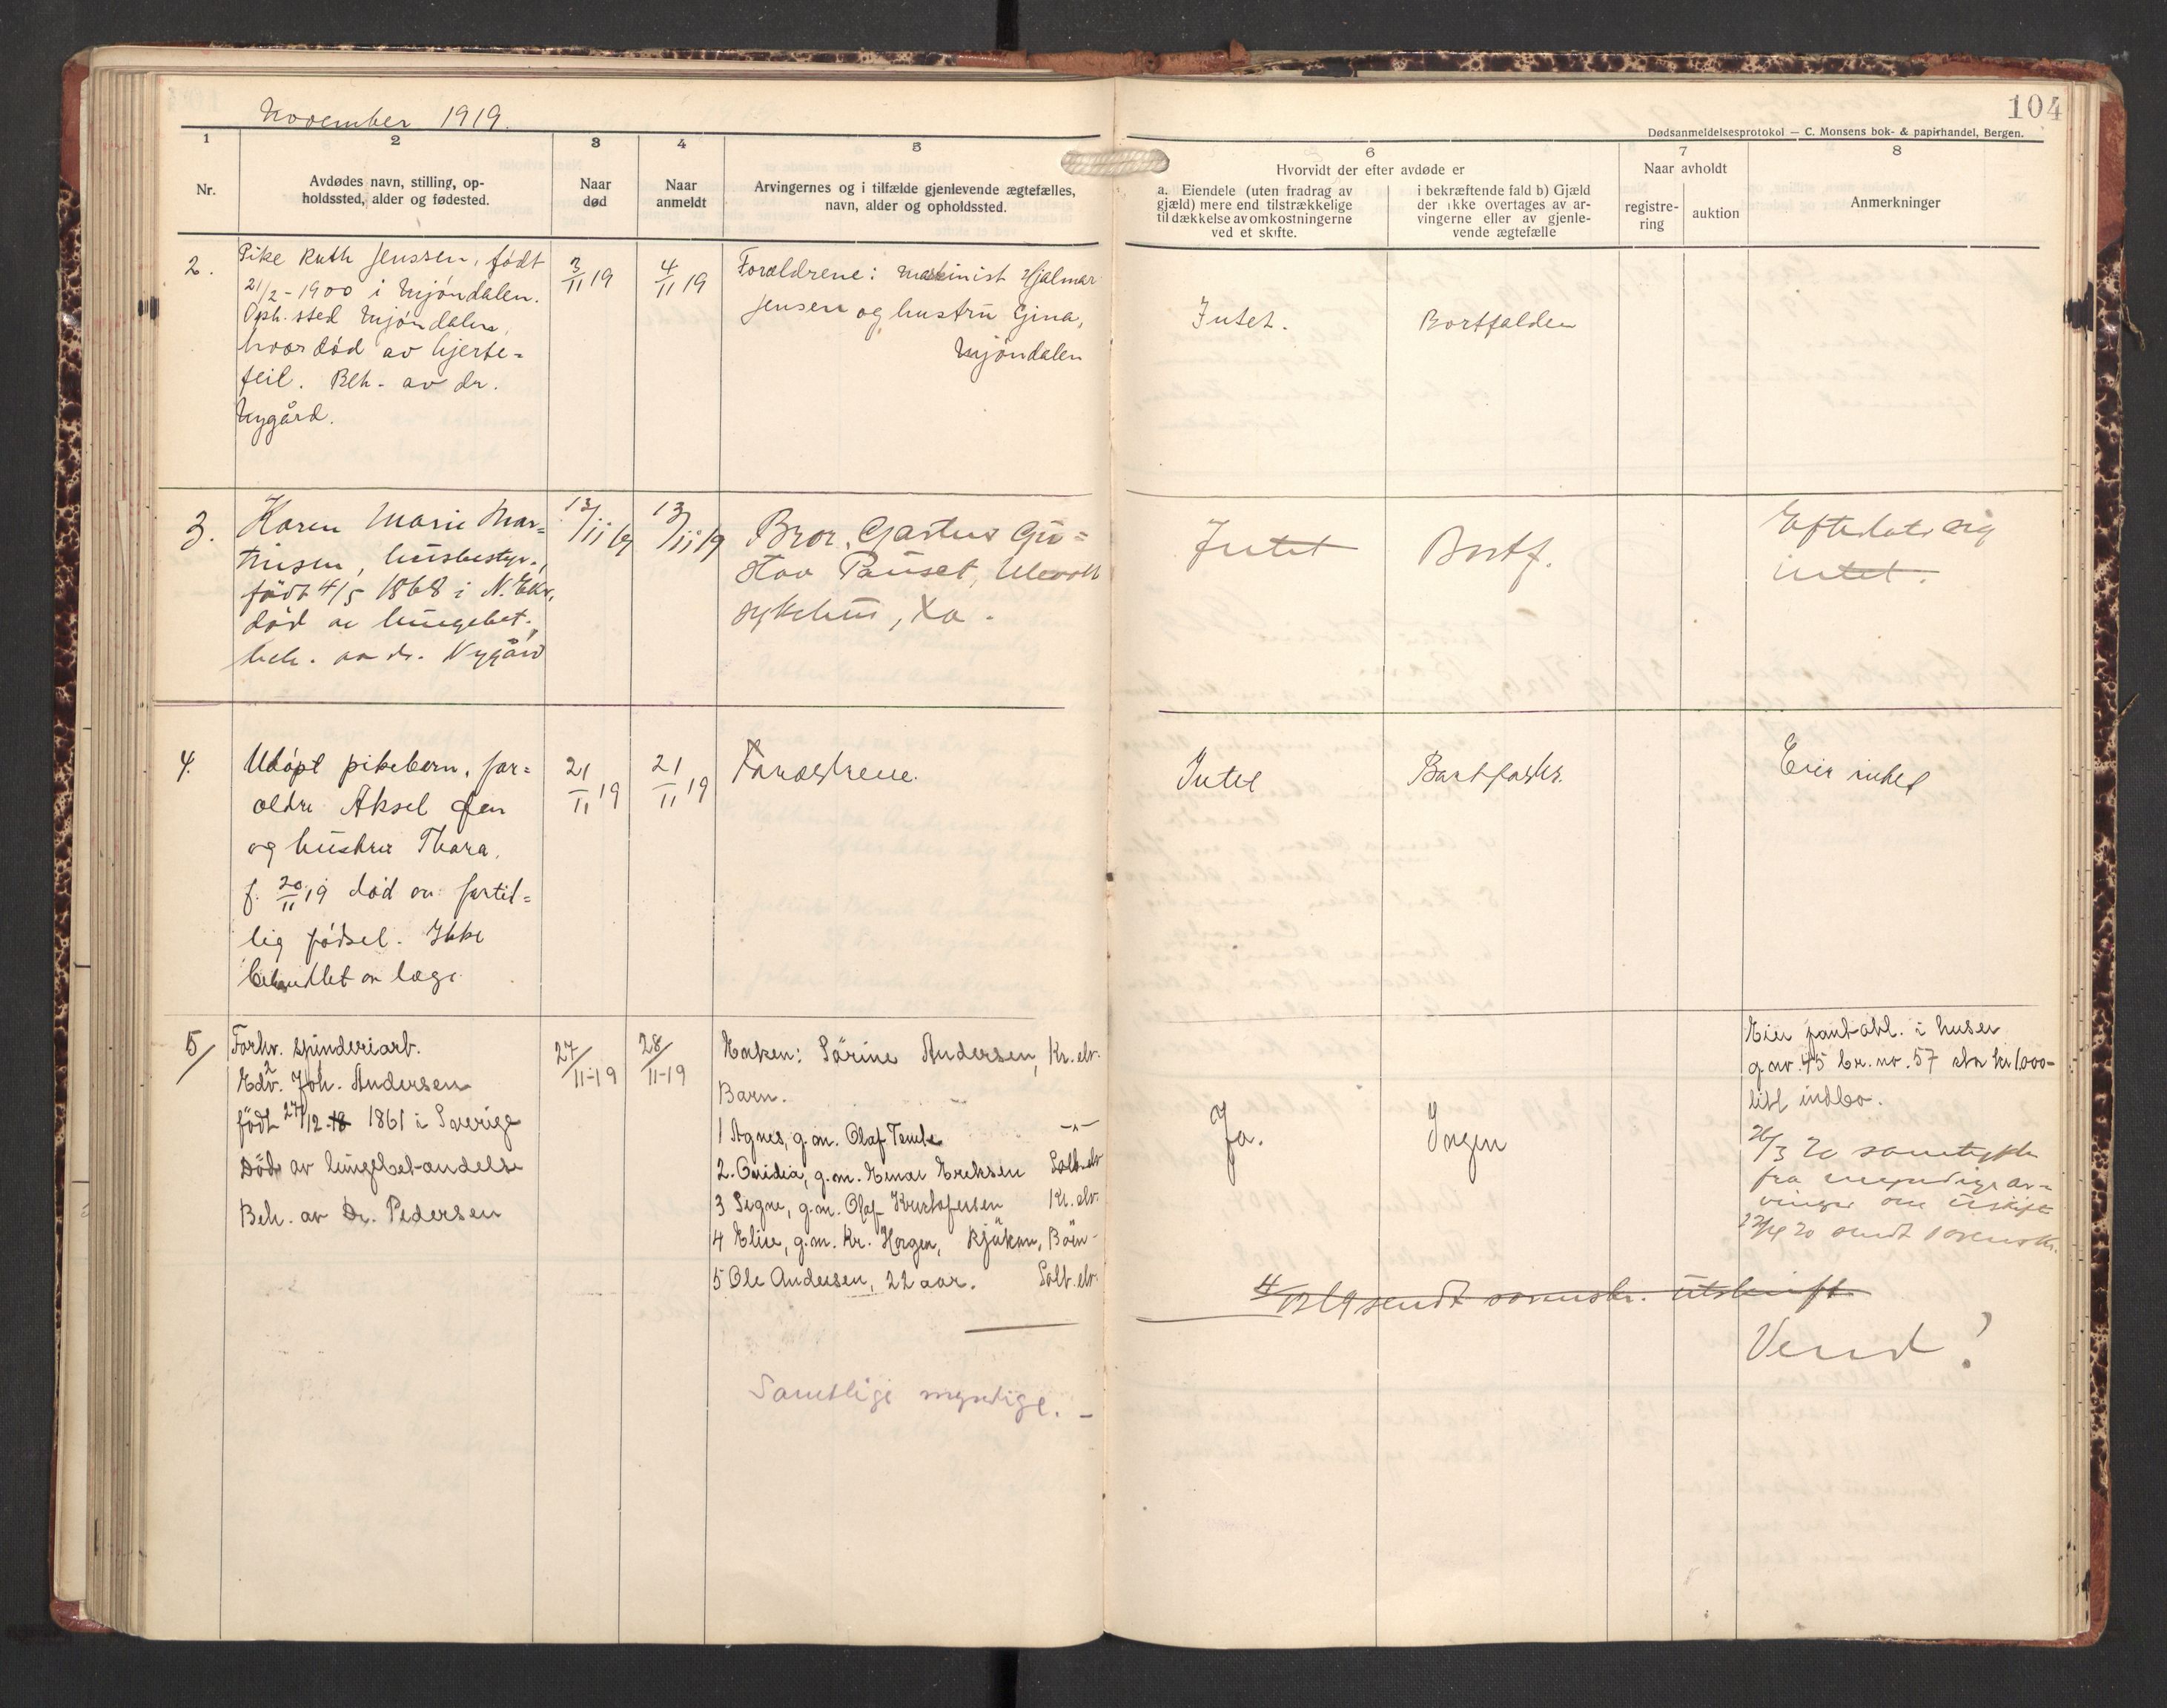 November 1919.
104
Dødsanmeldelsesprotokol — C. Monsens bok- & papirhandel, Bergen.
1 2 3 4 5 6 7 8
Nr.
Avdødes navn, stilling, op-
holdssted, alder og fødested.
Naar
død
Naar
anmeldt
Arvingernes og i tilfælde gjenlevende ægtefælles,
navn, alder og opholdssted.
Hvorvidt der efter avdøde er
a. Eiendele (uten fradrag av
gjæld) mere end tilstrækkelige
til dækkelse av omkostningerne
ved et skifte.
i bekræftende fald b) Gjæld
der ikke overtages av ar-
vingerne eller av gjenle-
vende ægtefælle
Naar avholdt
registre-
ring
auktion
Anmerkninger
2.
Pike Ruth Jenssen, født
21/2-1900 i Mjöndalen.
Oph. sted Mjöndalen,
hvor död av hjerte-
feil. Beh. av dr.
Nygård.
3/11 19
4/11 19
Forældrene: Maskinist Hjalmar
Jensen og hustru Gina,
Mjöndalen
Intet.
Bortfalden
3.
Karen Marie Mar-
tinsen, husbestyr.,
född 4/5 1868 i N. Eker,
död av lungebet.,
beh. av dr. Nygård
13/11 19
13/11 19
Bror, Gustav
Pauset, Ulevold
sykehus, Xa.
Intet
Bortf.
Efterlate sig
intet.
4.
Udöpt pikebarn, for-
ældre Aksel
og hustru Thora,
f. 20/11 19 död av fortid-
lig födsel. Ikke
behandlet av læge
21/11 19
21/11 19
Forældrene.
Intet
Bortfalder.
Eier intet
5/
Forhv. spinderiarb.
Edv. Joh. Andersen
födt 27/12 18 1861 i Sverige
Död av lungebetændelse
Beh. av Dr. Pedersen
27/11-19
28/11-19
Enken: Sörine Andersen, Kr. elv.
Barn.
1 Agnes, g. m. Olaf -"-
2. Ovidia, g. m. Einar Eriksen Solb. elv
3 Signe, g. m. Olaf Kristofersen Kr. elv.
4 Elise, g. m. Kr. Horgen, Rjukan,
5 Ole Andersen, 22 aar. Solb. elv.
Samtlige myndige. -
Ja.
Ingen
Eier i huset
g. nr. 45 br. nr. 57 kr 1000-
litt indbo.
26/3 20 samtykke
fra myndige ar-
vinger om
20 sendt
4/12 19 sendt utskrift
Vend!